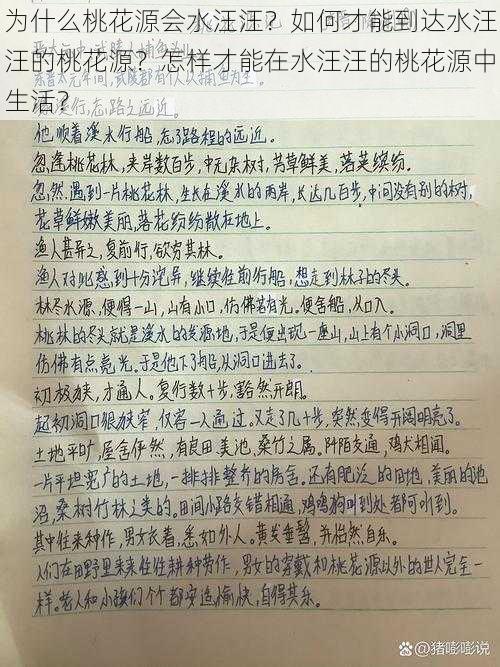 为什么桃花源会水汪汪？如何才能到达水汪
汪的桃花源？怎样才能在水汪汪的桃花源中
生活？
他顺着溪水行船，忘了路程的远近。
忽逢桃花林，夹岸数百步，中无杂树，芳草鲜美，落英缤纷。
忽然遇到一片桃花林，生长在溪水的两岸，长达几百步，中间没有别的树，
花草鲜嫩美丽，落花纷纷散在地上。
渔人甚异之，复前行，欲穷其林。
渔人对此感到十分诧异，继续往前行船，想走到林子的尽头。
林尽水源，便得一山，山有小口，仿佛若有光。便舍船，从口入。
桃林的尽头就是溪水的发源地，于是便出现一座山，山上有个小洞口，洞里
仿佛有点亮光。于是他下了船，从洞口进去了。
初极狭，才通人。复行数十步，豁然开朗。
起初洞口很狭窄，仅容一人通过。又走了几十步，突然变得开阔明亮了。
土地平旷，屋舍俨然，有良田美池，桑竹之属。阡陌交通，鸡犬相闻。
一片平坦宽广的土地，一排排整齐的房舍。还有肥沃的田地，美丽的池
沼，桑树竹林之类的。田间小路交错相通，鸡鸣狗叫到处都可听到。
其中往来种作，男女衣着，悉如外人。黄发垂髫，并怡然自乐。
人们在田野里来来往往耕种劳作，男女的穿戴和桃花源以外的世人完全一
样。老人和小孩们个个都安适愉快，自得其乐。
@猪嘭嘭说